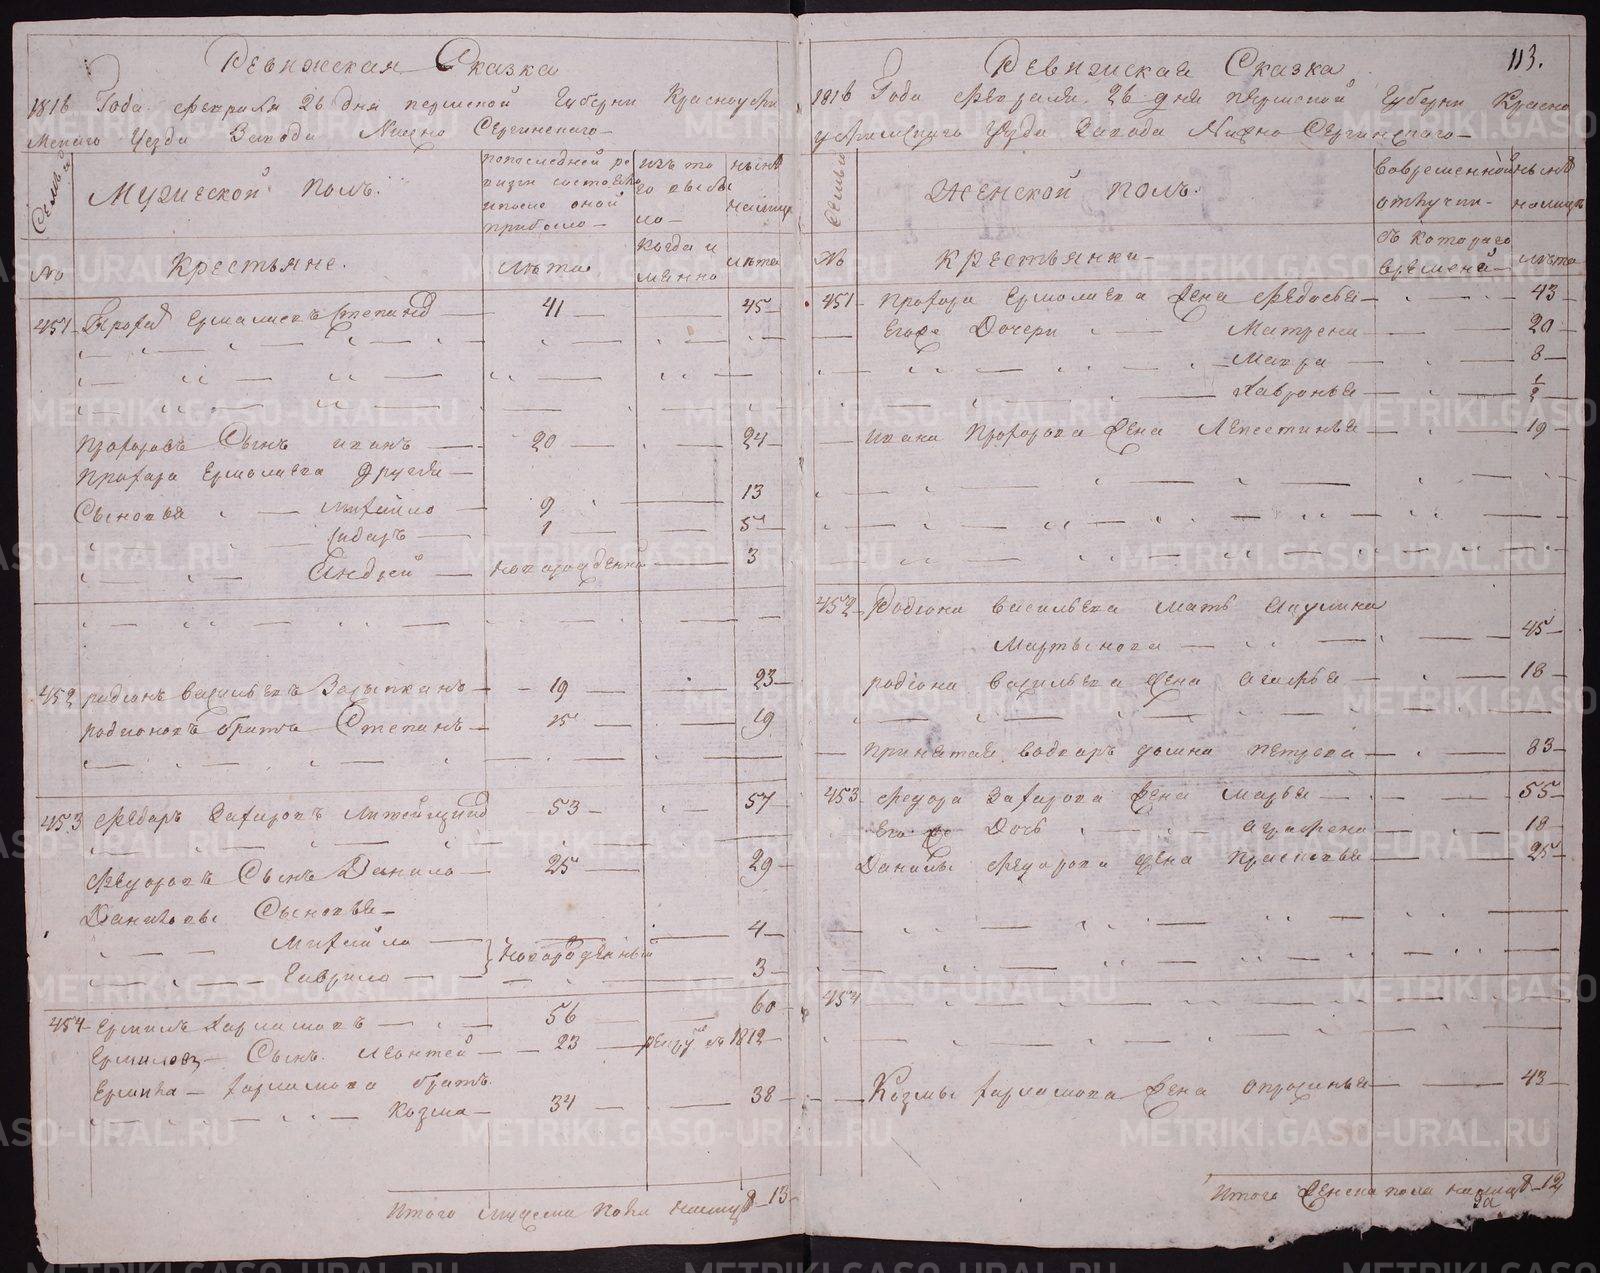 Ревижская Сказка
1816 Года февраля 26 дня пермской Губерни Красноуфи
мскаго Уезда Завода Нижно Сергинскаго
Семьи
Мужеской полъ.
попоследней ре
визи состояло
ипосле оной
прибыло
изъ то
го выбы
ло
ныне
налицо
No
Крестьяне.
лета
когда и
менно
лета
451 Профор Ермолаевъ 41 45
Профоровъ Сынъ иванъ 20 24
Профора Ермолаева другия
Сыновья Михайло 9 13
сидоръ 1 5
Андрей новорожденной 3
452 родионъ васильевъ 19 23
родионовъ братъ Степанъ 15 19
453 Федоръ Захаровъ 53 57
Федоровъ Сынъ Данило 25 29
Даниловы Сыновья
Михайло 4
новорожденный
Гаврило 3
454 Ермилъ Харламовъ 56 60
Ермиловъ Сынъ Леонтей 23 рекру въ 1812
Ермила Харламова братъ
Козма 34 38
Итого мужеска пола налицо 13
113.
Ревижская Сказка
1816 Года февраля 26 дня пермской Губерни Красно
уфимскаго Уезда Завода Нижно Сергинскаго
Семьи
Женской полъ.
вовременной
отлучки
ныне
налицо
No
Крестьянки
съ котораго
времени
лета
451 Профора Ермолаева жена Федосья 43
Егоже Дочери Матрена 20
Мавра 8
Хавронья 1/2
ивана Профорова жена 19
452 Родиона васильева мать Акулина
Мартынова 45
родиона васильева жена агафья 18
Принятая домна петрова 83
453 Федора Захарова жена марья 55
Его же Дочь аграфена 18
Данилы Федорова жена Прасковья 25
454
Козмы Харламова жена опросинья 43
Итого женска пола налицо 12